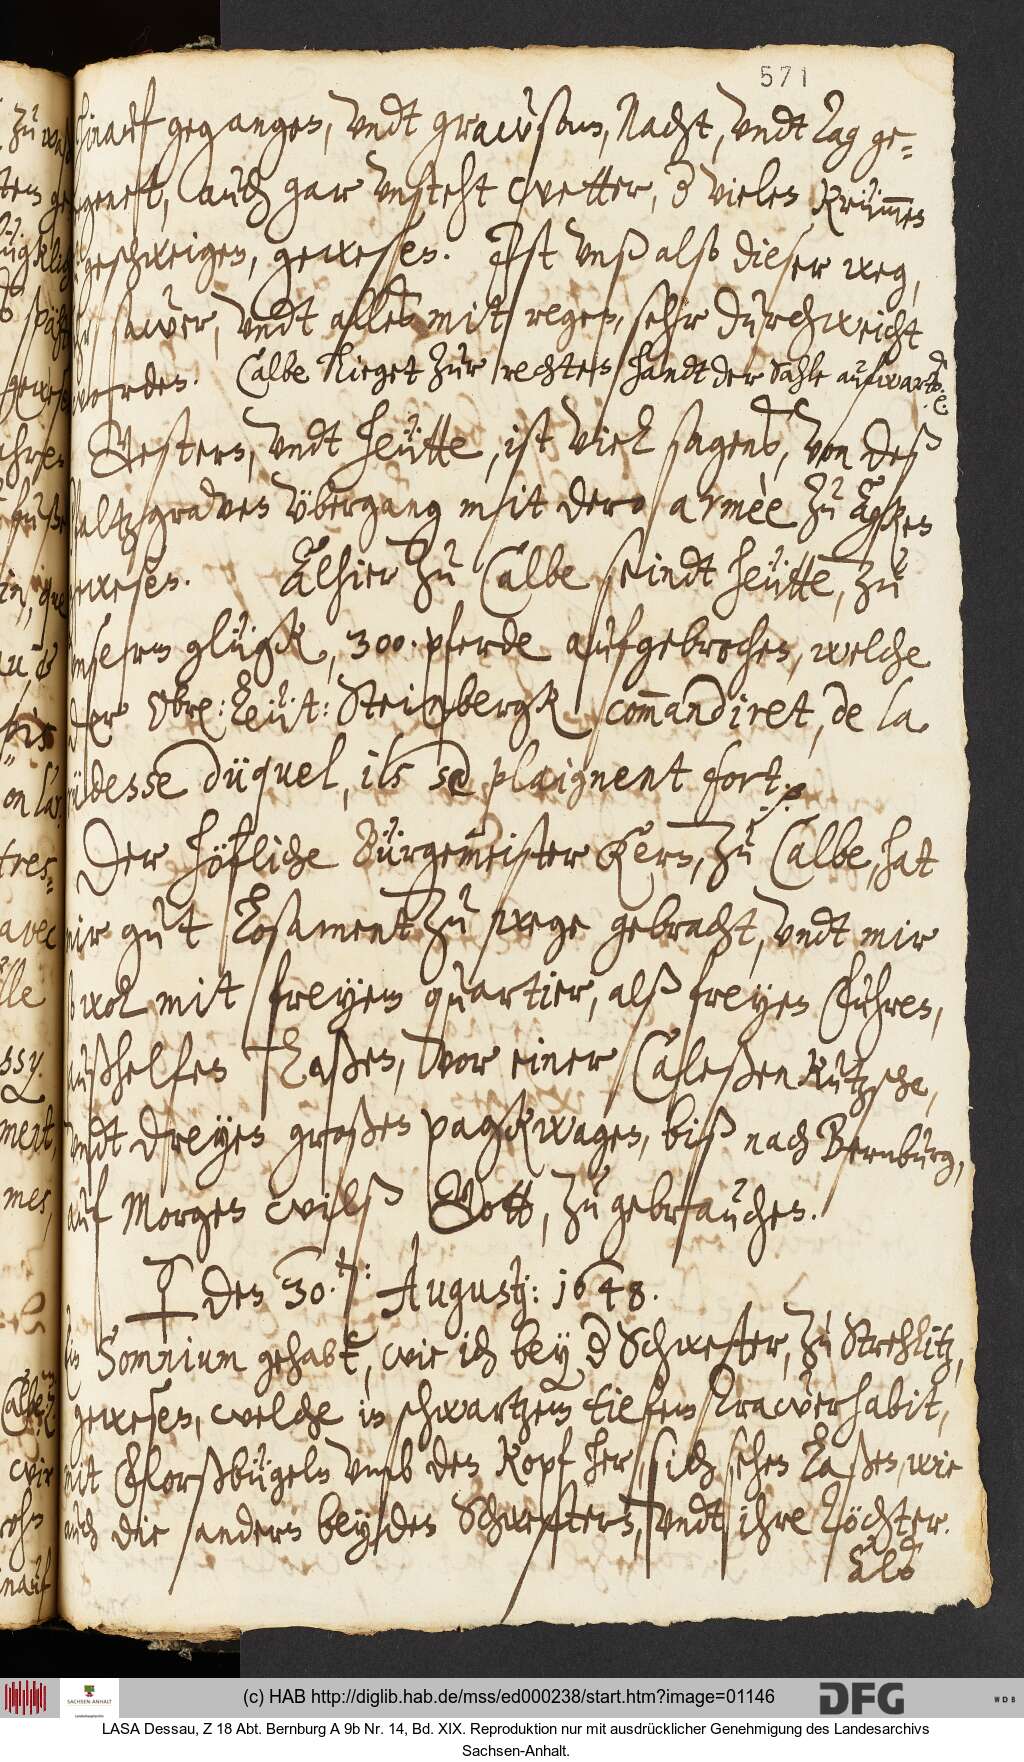 571
hinauf gegangen, vndt grawsam, Nacht, vndt Tag ge-
regenet, auch gar vnsteht wetter, d vielen Krümmen
geschweigen, gewesen. Ist vnß also dieser weg,
sehr sawer, vndt alles mit regen, sehr durchweicht
worden. Calbe lieget zur rechten handt der Sahle aufwarts.
Gestern, vndt heütte, ist viel sagens, von deß
Pfaltzgraven übergang mit dero armèe zu Agken
gewesen. Alhier zu Calbe seindt heütte, zu
vnserm glügk, 300. pferde aufgebrochen, welche
der Obr: Leüt: Steinbergk commandiret, de la
rüdesse düquel, ils se plaignent fort.
Der höfliche Bürgemeister Kern, zu Calbe, hat
mir gut Losament zu wege gebracht, vndt mir
so wol mit freyem quartier, alß freyen Fuhren,
außhelfen laßen, vor einer Caleßen Kutzsche,
vndt dreyen großen pagkwagen, biß nach Bernburg,
auf Morgen wilß Gott, zu gebrauchen.
den 30. t: Augustj: 1648.
Ein Somnium gehabt, wie ich bey d Schwester, zu Strehlitz,
gewesen, welche in schwartzem tiefem Trawerhabit,
mit Florßbügeln vmb den Kopf her, sich sehen laßen, wie
auch die andern beyden Schwestern, vndt ihre Töchter.
Als
(c) HAB http://diglib.hab.de/mss/ed000238/start.htm?image=01146
SACHSEN-ANHALT
DFG
WDB
LASA Dessau, Z 18 Abt. Bernburg A 9b Nr. 14, Bd. XIX. Reproduktion nur mit ausdrücklicher Genehmigung des Landesarchivs
Sachsen-Anhalt.